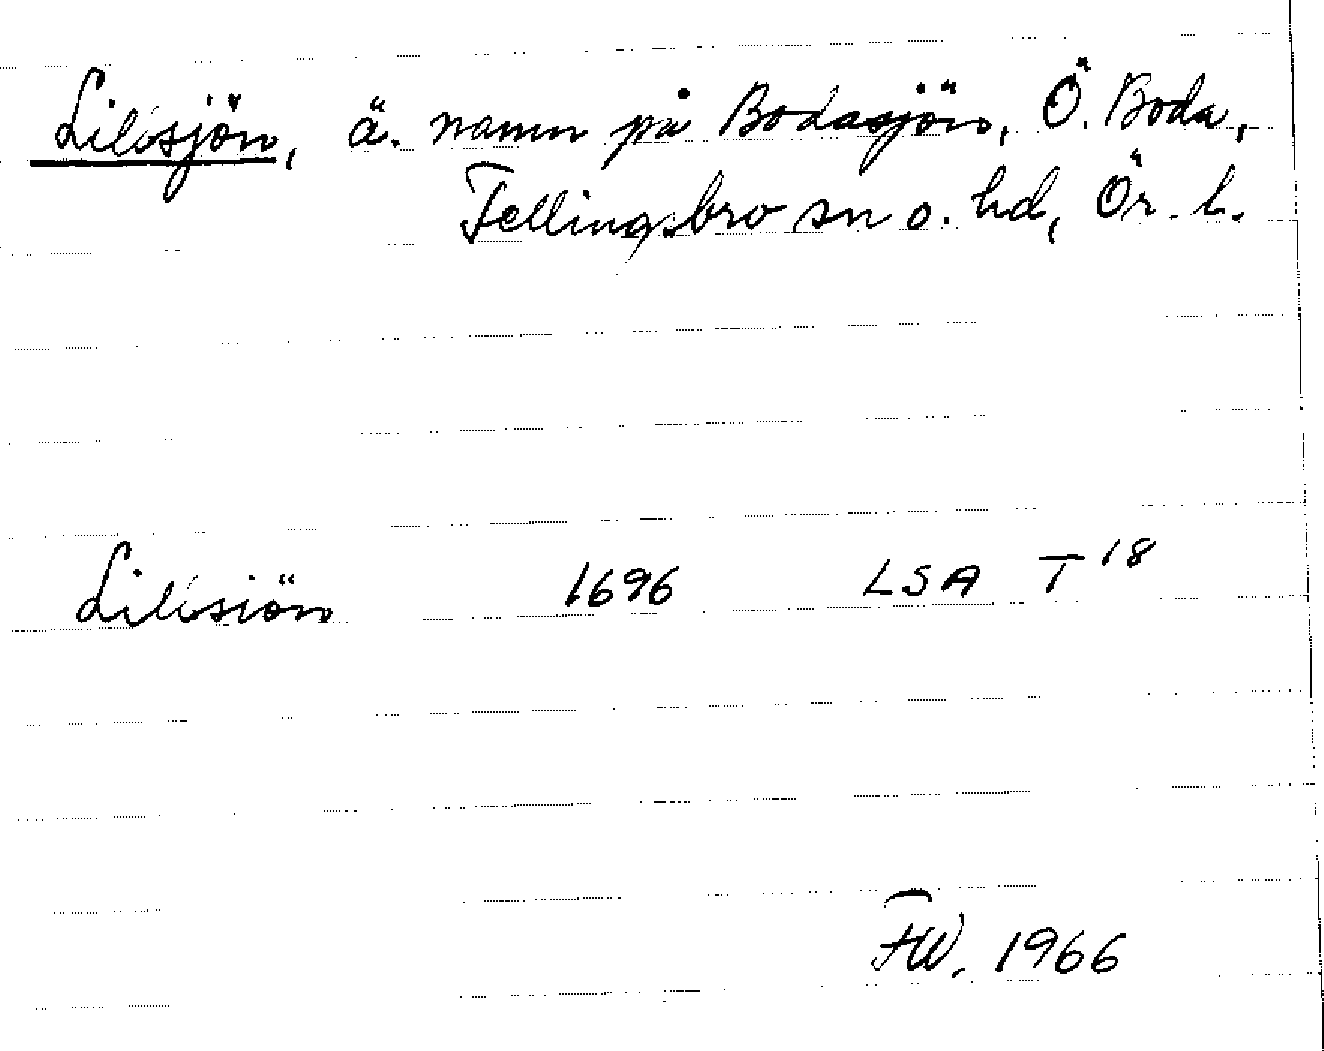 Lillsjön, ä. namn på Bodasjön, Ö. Boda,
Fellingsbro sn o. hd, Ör. l.
Lillsiön 1696 LSA T 18
FW. 1966